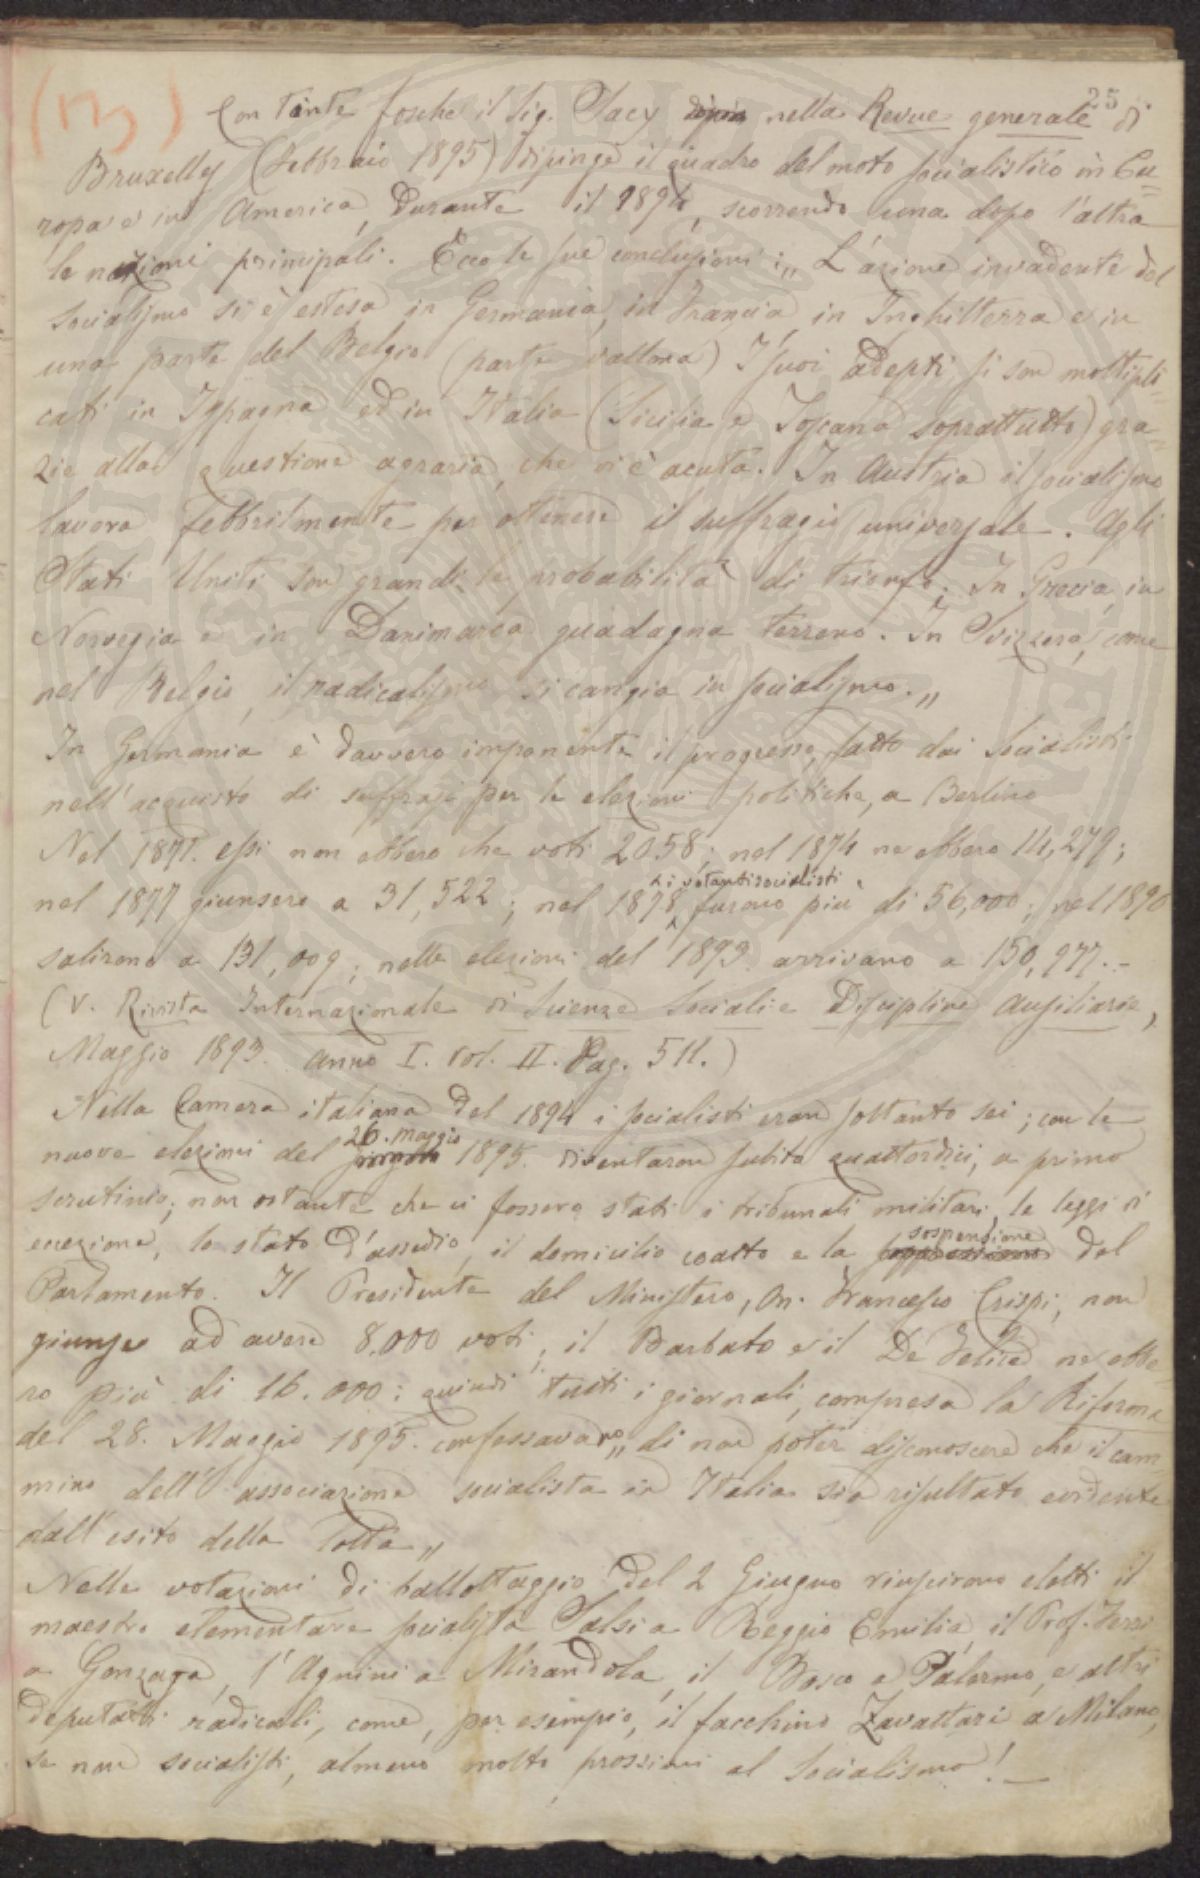 25
(13) Con tinte fosche il Sig. Sacy dipin nella Revue generale di
Bruxelles (Febbraio 1895) dipinge il quadro del moto socialistico in Eu=
ropa e in America, durante il 1894, scorrendo una dopo l'altra
le nazioni principali. Ecco le sue conclusioni: „ L'azione invadente del
Socialismo si è estesa in Germania, in Francia, in Inghilterra e in
una parte del Belgio (parte vallona) I suoi adepti si son moltipli=
cati in Ispagna ed in Italia (Sicilia e Toscana soprattutto) gra=
zie alla questione agraria, che vi è acuta. In Austria il socialismo
lavora febbrilmente per ottenere il suffragio universale. Agli
Stati Uniti son grandi le probabilità di trionfo. In Grecia, in
Norvegia e in Danimarca guadagna terreno. In Svizzera, come
nel Belgio, il radicalismo si cangia in socialismo. „
In Germania è davvero imponente il progresso, fatto dai Socialisti
nell'acquisto di suffragi per le elezioni politiche, a Berlino
Nel 1871. essi non ebbero che voti 2058; nel 1874 ne ebbero 14,279;
nel 1877 giunsero a 31,522; nel 1878 i votanti socialisti furono più di 56,000; nel 1890
salirono a 131,009; nelle elezioni del 1893 arrivano a 150,977. -
(V. Rivista Internazionale di Scienze Sociali e Discipline Ausiliarie,
Maggio 1893. Anno I. Vol. II. Pag. 511.)
Nella Camera italiana del 1894 i socialisti eran soltanto sei; con le
nuove elezioni del 26. Maggio 1895. diventaron subito quattordici, a primo
scrutinio; non ostante che ci fossero stati i tribunali militari, le leggi di
eccezione, lo stato d'assedio, il domicilio coatto e la sospensione del
Parlamento. Il Presidente del Ministero, On. Francesco Crispi, non
giunse ad avere 8.000 voti; il Barbato e il De Felice ne ebbe=
ro più di 16.000: quindi tutti i giornali, compresa la Riforma
del 28. Maggio 1895. confessavano „ di non poter disconoscere che il cam=
mino dell'associazione socialista in Italia sia risultato evidente
dall'esito della lotta „
Nelle votazioni di ballottaggio del 2 Giugno riuscirono eletti il
maestro elementare socialista Salsi a Reggio Emilia, il Prof. Ferri
a Gonzaga, l'Agnini a Mirandola, il Bosco a Palermo, e altri
deputati radicali, come, per esempio, il facchino Zavattari a Milano,
se non socialisti, almeno molto prossimi al Socialismo! —